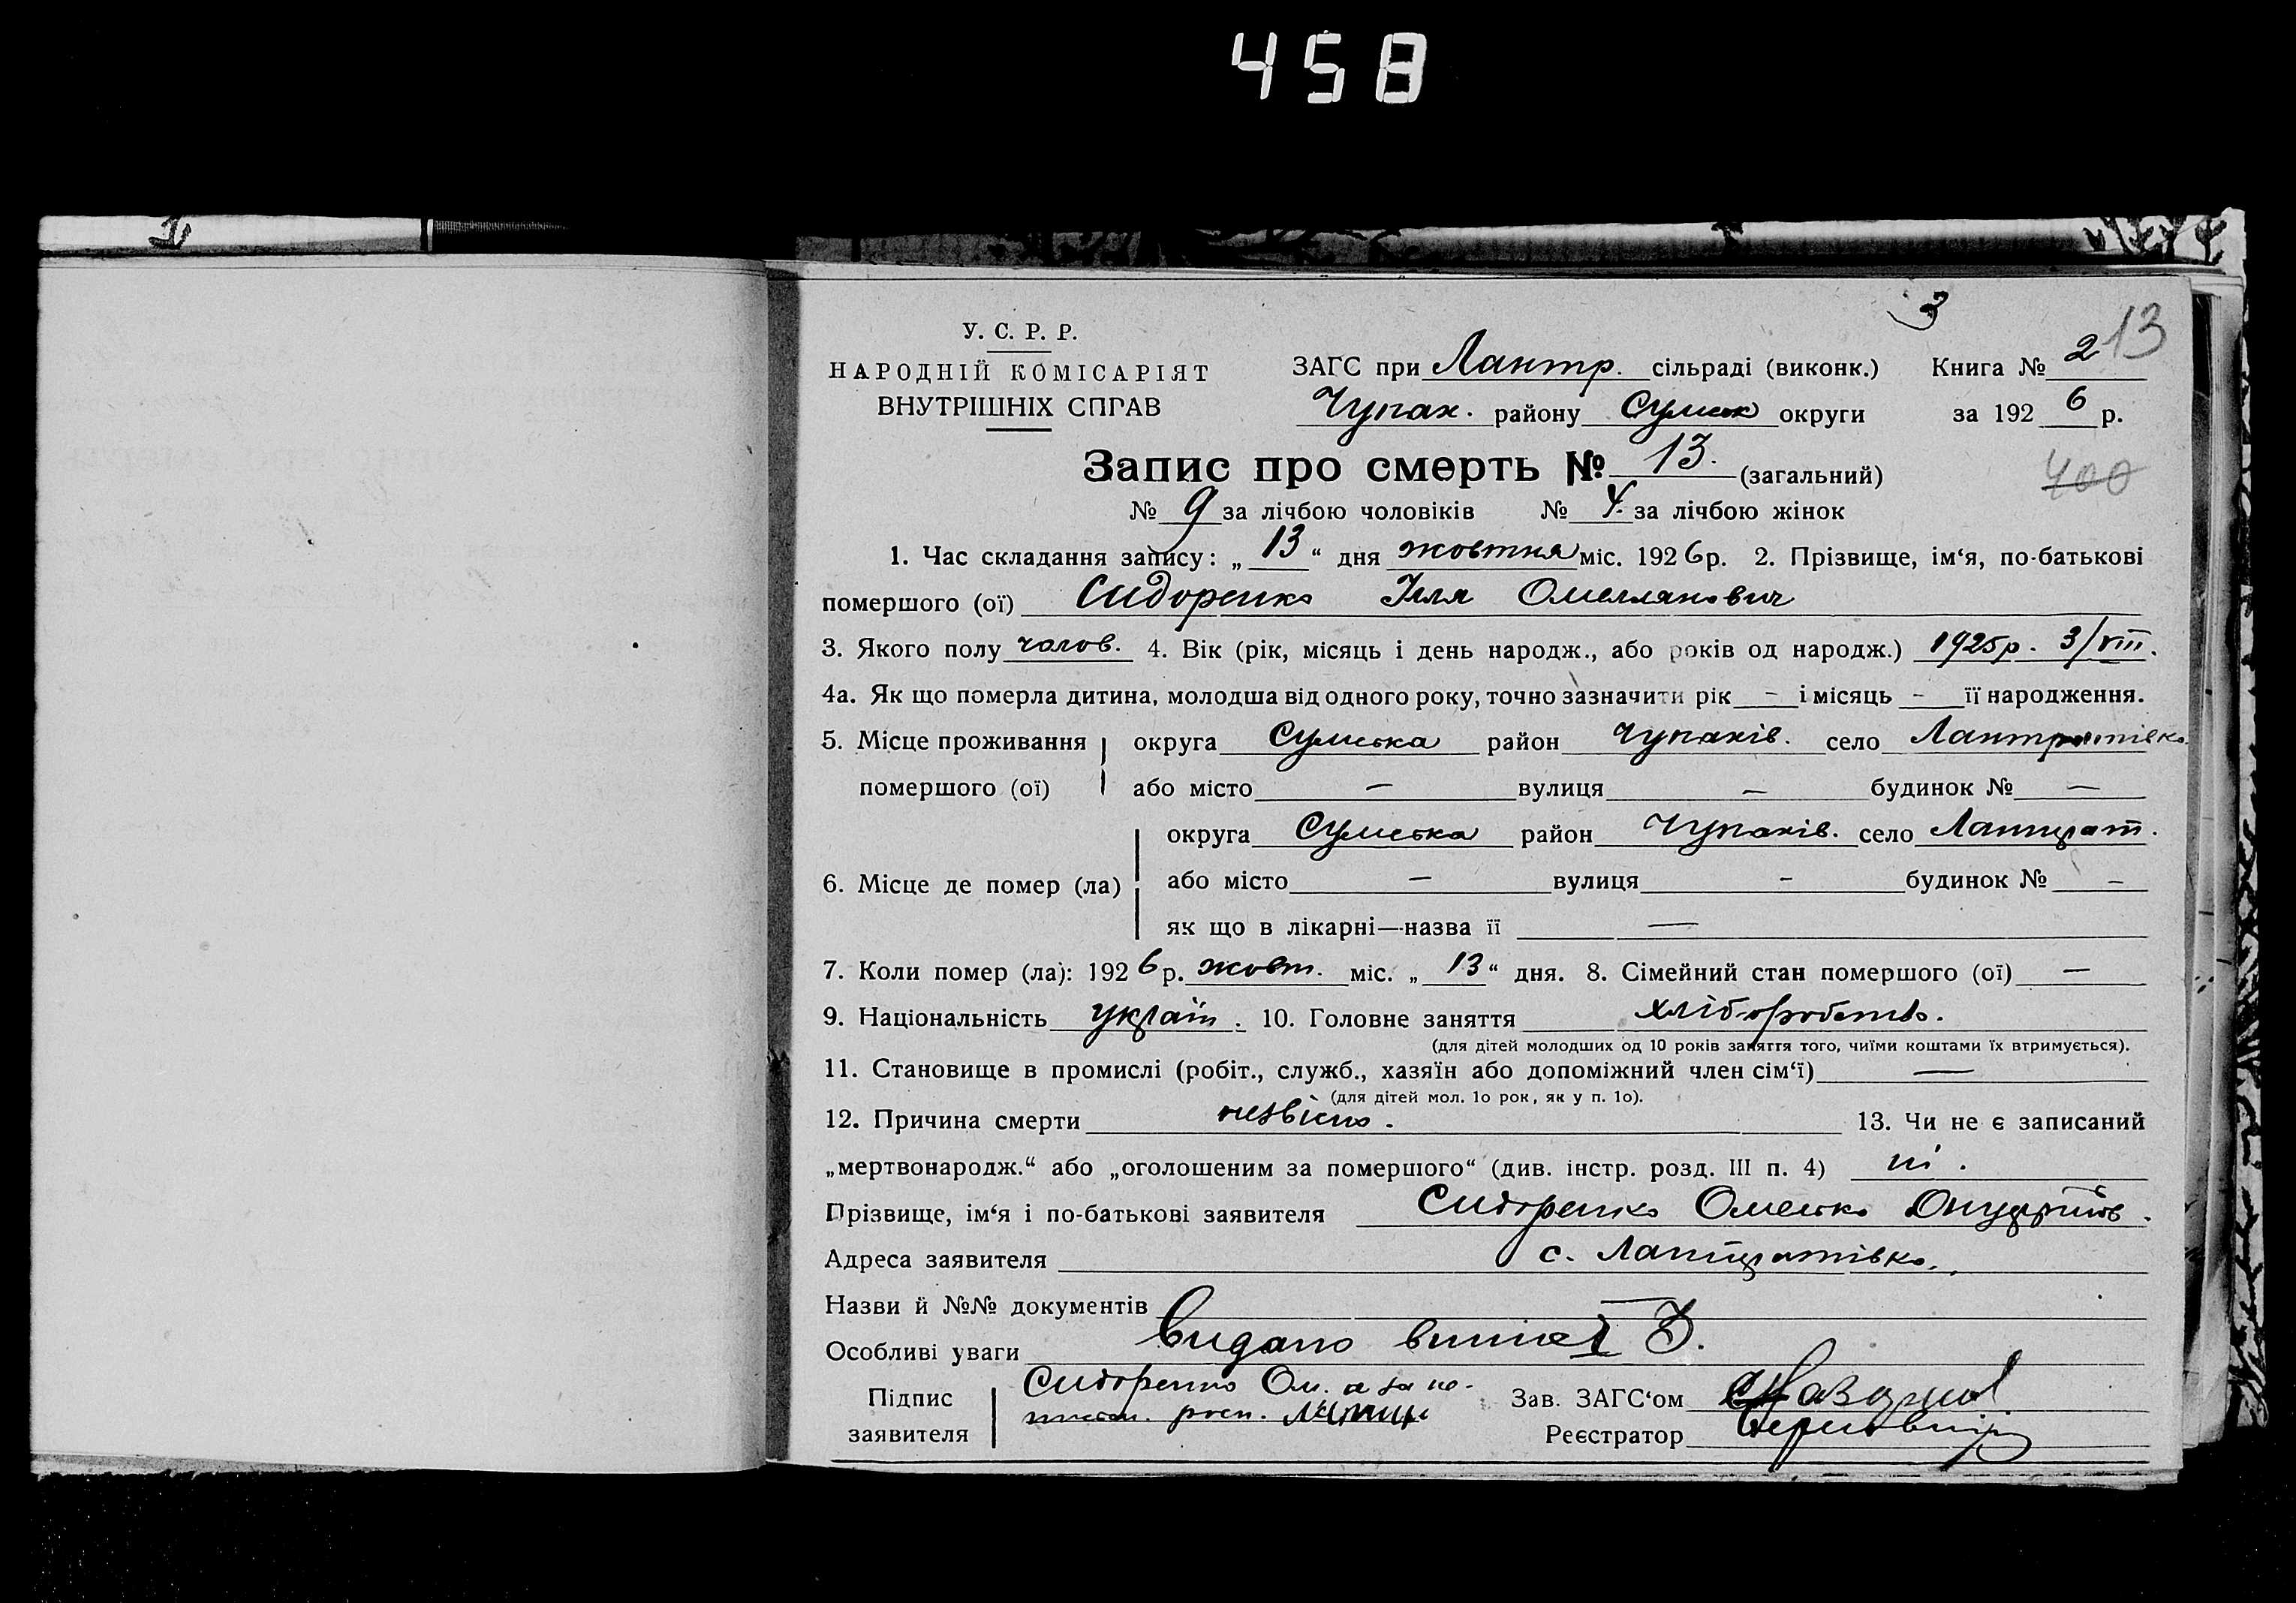 458
3
У. С. Р. Р.
НАРОДНІЙ КОМІСАРІЯТ
ВНУТРІШНІХ СПРАВ
ЗАГС при Лантр. сільраді (виконк.) Книга № 2 13
Чупах. району Сумськ округи за 192 6 р.
Запис про смерть № 13. (загальний)
400
№ 9 за лічбою чоловіків № 4. за лічбою жінок
1. Час складання запису: „ 13 “ дня жовтня міс. 192 6 р. 2. Прізвище, ім‘я, по-батькові
помершого (ої) Сидоренко Ілля Омелянович
3. Якого полу чолов. 4. Вік (рік, місяць і день народж., або років од народж.) 1925р. 3/VIII.
4а. Як що померла дитина, молодша від одного року, точно зазначити рік - і місяць - її народження.
5. Місце проживання округа Сумська район Чупахів. село Лантратівка
помершого (ої) або місто — вулиця — будинок № —
округа Сумська район Чупахів. село Лантрат.
6. Місце де помер (ла) або місто — вулиця - будинок № —
як що в лікарні—назва її —
7. Коли помер (ла): 192 6 р. жовт. міс. „ 13 “ дня. 8. Сімейний стан помершого (ої) —
9. Національність україн. 10. Головне заняття хліборобство.
(для дітей молодших од 10 років заняття того, чиїми коштами їх втримується).
11. Становище в промислі (робіт., служб., хазяїн або допоміжний член сім‘ї) —
(для дітей мол. 1о рок, як у п. 1о).
12. Причина смерти незвісно. 13. Чи не є записаний
„мертвонародж.“ або „оголошеним за помершого“ (див. інстр. розд. III п. 4) ні.
Прізвище, ім‘я і по-батькові заявителя Сидоренко Омелько
Адреса заявителя с. Лантратівка.
Назви й №№ документів —
Особливі уваги видано
Підпис Сидоренко Ом. а за
заявителя росп.
Зав. ЗАГС‘ом
Реєстратор